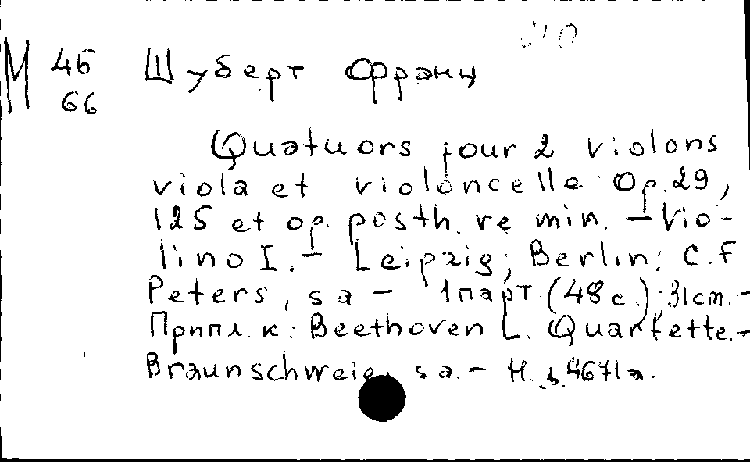 М 46 Шуберт Франц
66
Quatuors pour 2 violons
viola et violoncelle Op. 29,
125 et op. posth. re min. – Vio-
lino I. – Leipzig; Berlin: C. F
Peters, s a – 1 парт. (48 с.) 31 cm. –
Припл. к: Beethoven L. Quartette. –
Braunschweig, s. a. –